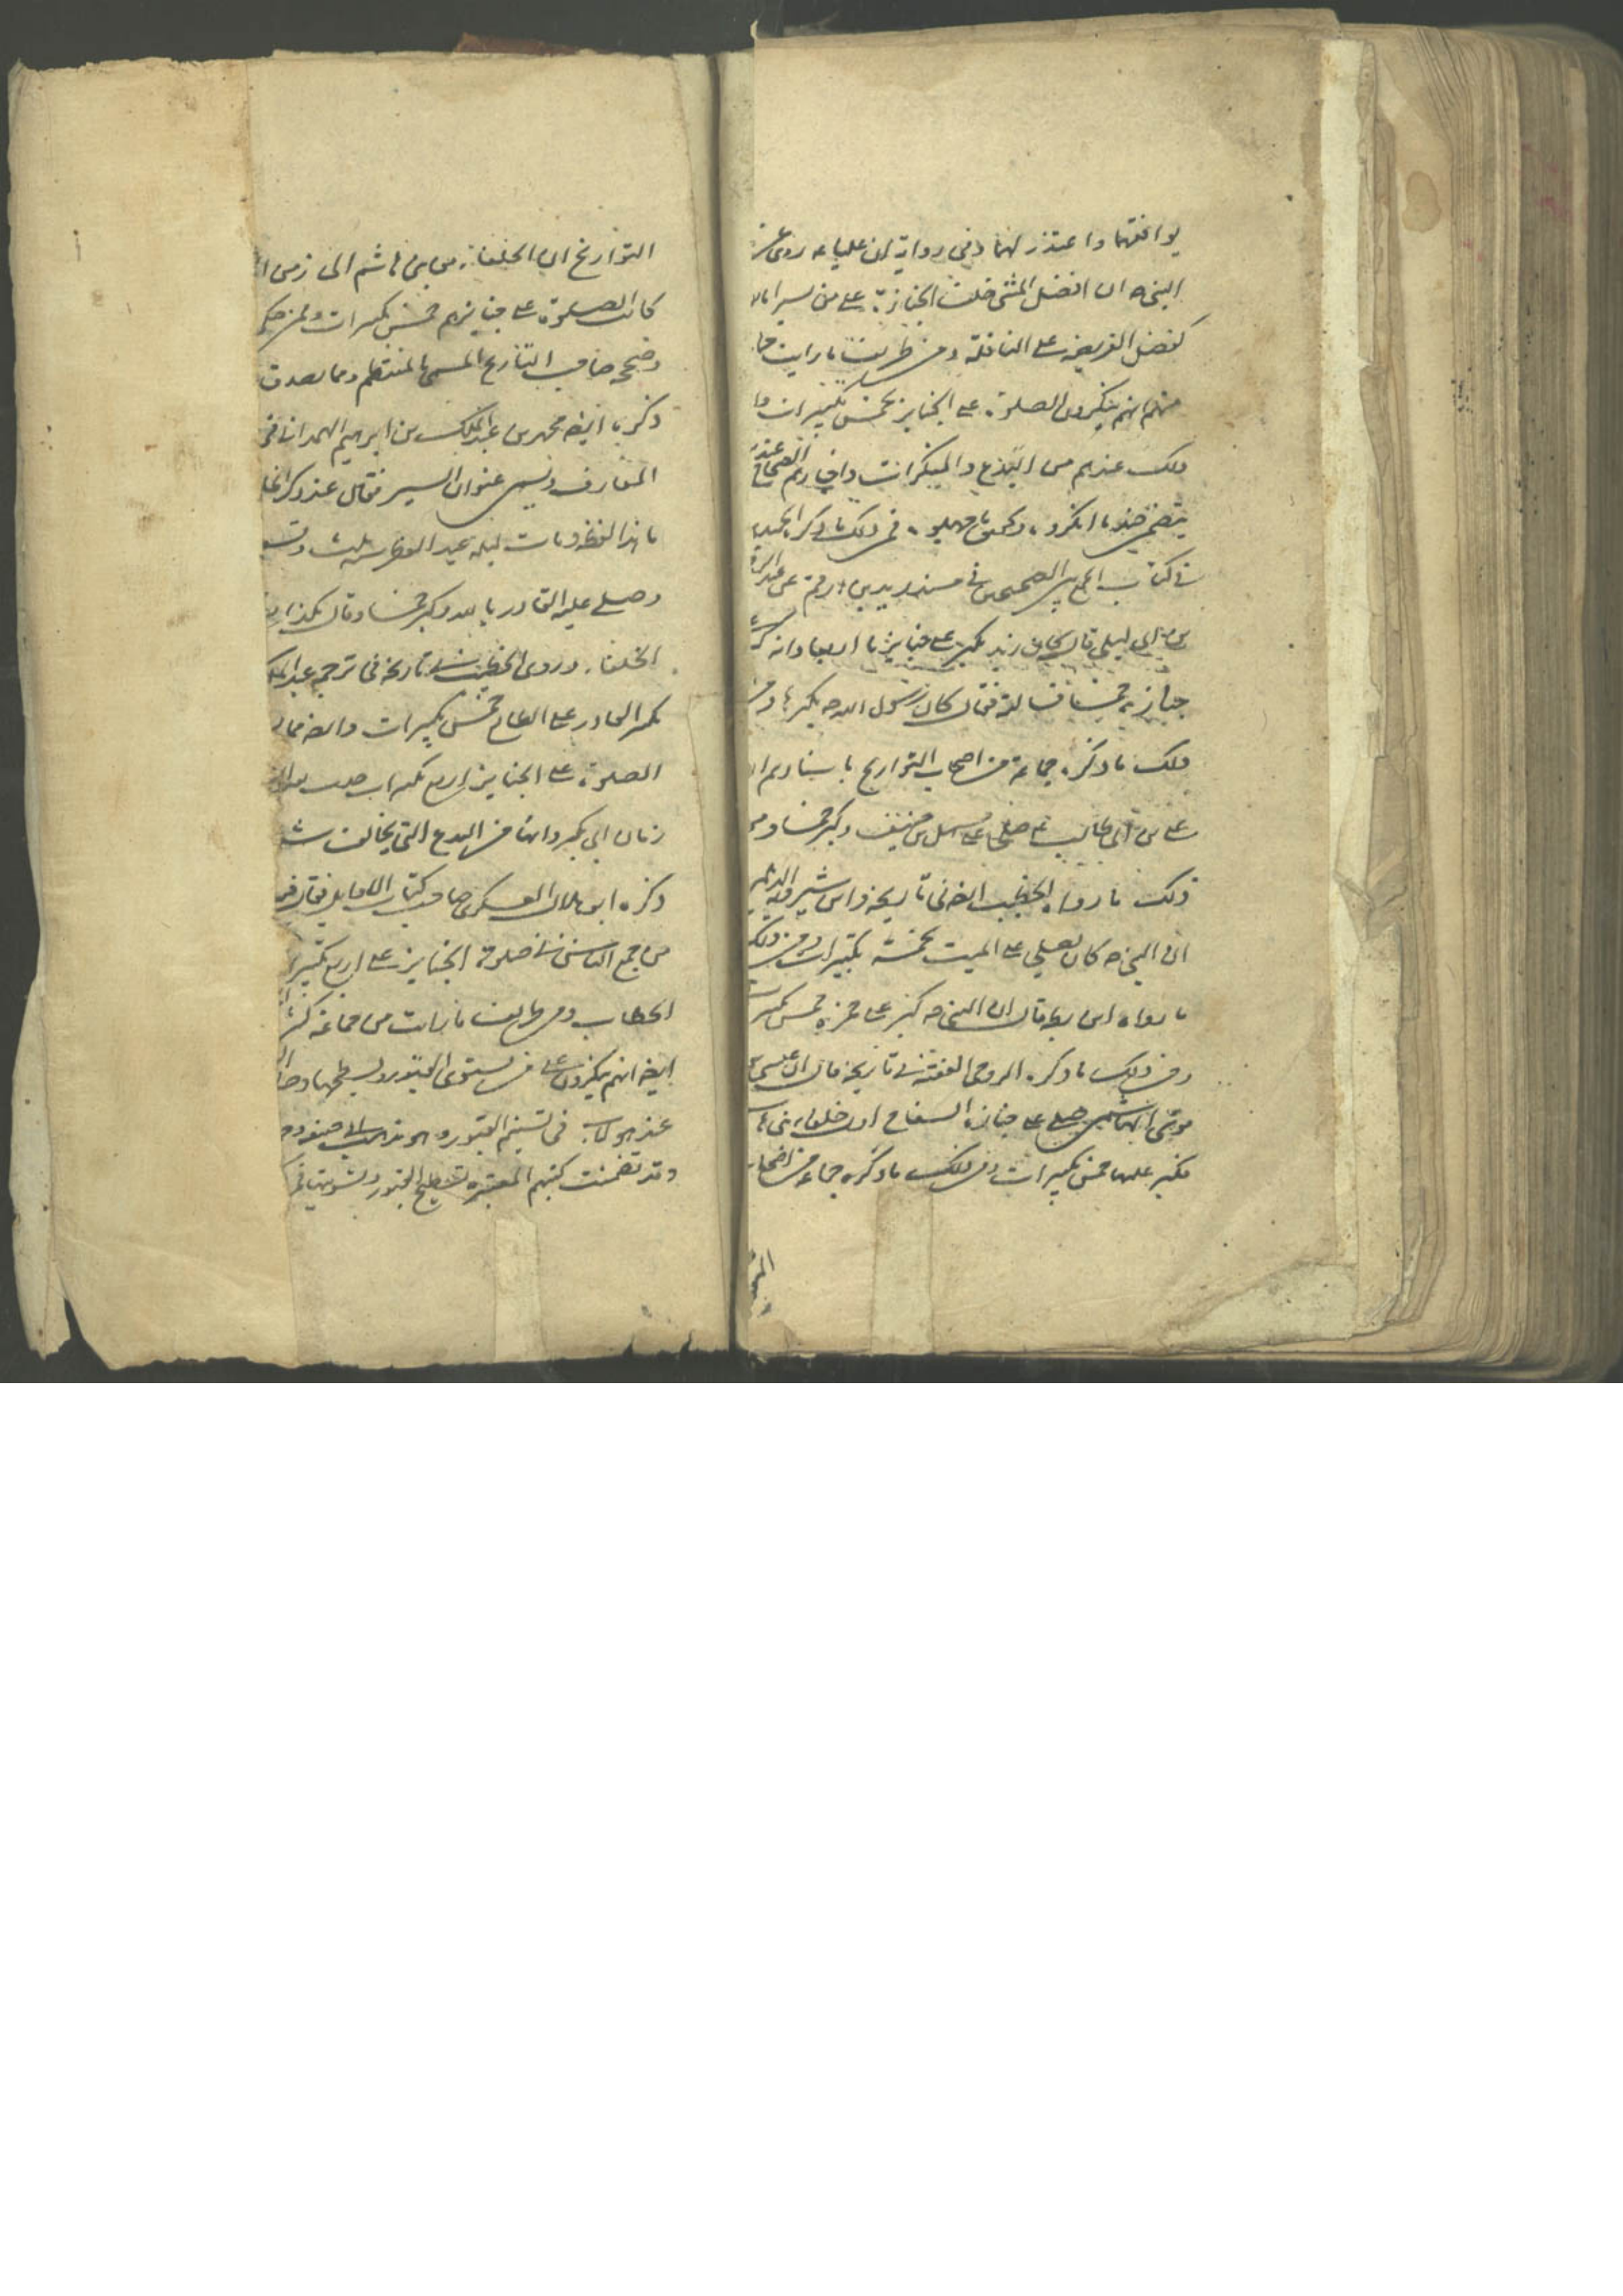 يوافقهما واعتذر لهما وفي رواية ان عليا عه روى عن
النبي ص ان افضل المشي خلف الجنازة على من يسير امامها
كفضل الفريضة على النافلة ومن طريف ما رايت
منهم انهم ينكرون الصلوة على الجنايز بخمس تكبيرات
ذلك عندهم من البدع والمنكرات واخبارهم الصحاح عندهم
يتضمن ضد ما انكروه وتحقق ما جهلوه فمن ذلك ما ذكره الحميدي
في كتاب الجمع بين الصحيحين في مسند زيد بن ارقم عن عبد الرحمن
بن ابي ليلى قال كان زيد يكبر على جنايزنا اربعا وانه كبر على
جنازة خمسا فسالته فقال كان رسول الله ص يكبرها ومن
ذلك ما ذكره جماعة من اصحاب التواريخ باسنادهم ان
على بن ابي طالب ع صلى على سهل بن حنيف وكبر خمسا ومن
ذلك ما رواه الخطيب ايضا في تاريخه وابن شيرويه الديلمي
ان النبي ص كان يصلي على الميت بخمسة تكبيرات ومن ذلك
ما رواه ابن بطة قال ان النبي ص كبر على حمزة خمس تكبيرات
ومن ذلك ما ذكره الروحي الفقيه في تاريخه قال ان عيسى بن
موسى الهاشمي صلى على جنازة السفاح اول خلفاء بني هاشم
فكبر عليها خمس تكبيرات ومن ذلك ما ذكره جماعة من اصحاب
التواريخ ان الخلفاء من بني هاشم الى زمن
كانت الصلوة على جنايزهم خمس تكبيرات
وصححه صاحب التاريخ المسمى بالمنتظم ومما يصدق
ذكره ايضا محمد بن عبد الملك بن ابراهيم الهمداني في
المعارف ويسمى عنوان السير فقال عند ذكر
ما هذا لفظه ومات ليلة عيد الفطر سنة ثلث
وصلى عليه القادر بالله وكبر خمسا وقال هكذا
الخلفاء وروى الخطيب في تاريخه في ترجمة عبد الملك
كبر القادر على الطائع خمس تكبيرات
الصلوة على الجنايز اربع تكبيرات
زمان ابي بكر وانها من البدع التي يخالف
ذكره ابو هلال العسكري صاحب كتاب الاوايل فقال
من جمع الناس في صلوة الجنايز على اربع تكبيرات
الخطاب ومن طريف ما رايت من جماعة
ايضا انهم ينكرون على من يستوى القبور ويسطحها
عند هولاء في تسنيم القبور وهو
وقد تضمنت كتبهم المعتبرة تسطيح القبور وتسويتها